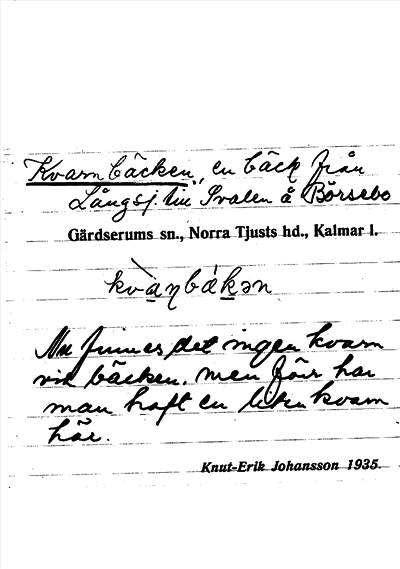 Kvarnbäcken, en bäck från
Långsj. till Svalen å Börsebo
Gärdserums sn., Norra Tjusts hd., Kalmar l.
kvaṇbäkən
Nu finnes det ingen kvarn
vid bäcken, men förr har
man haft en liten kvarn
här.
Knut-Erik Johansson 1935.